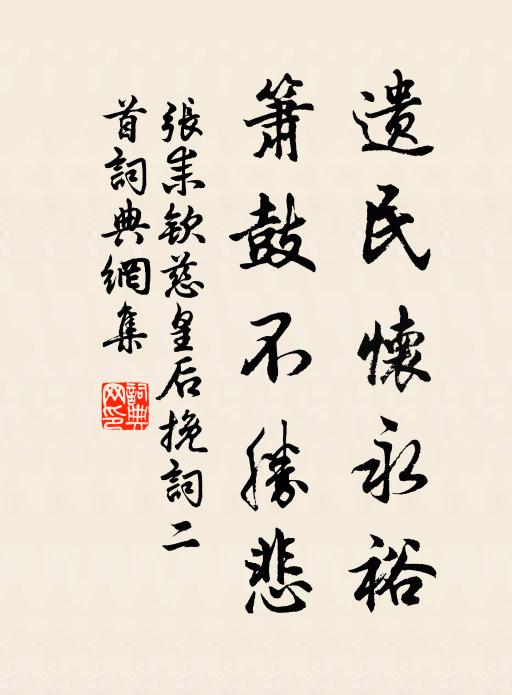 遺民懷永裕
簫鼓不勝悲
張耒欽慈皇后挽詞二
首詞典網集
詞典
网印